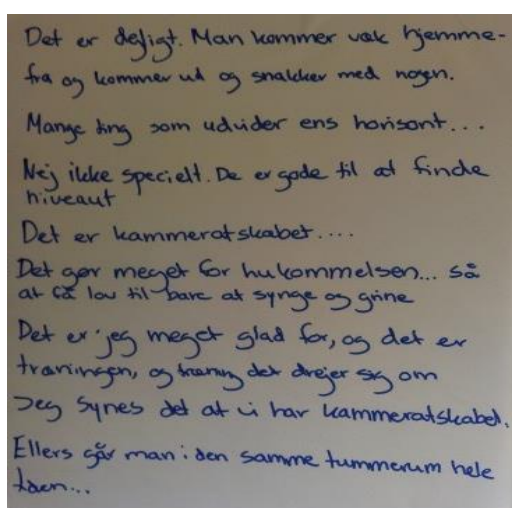 Det er dejligt. Man kommer væk hjemme-
fra og kommer ud og snakker med nogen.
Mange ting som udvider ens horisont...
Nej ikke specielt. De er gode til at finde
niveaut
Det er kammeratskabet....
Det gør meget for hukommelsen... så
at få lov til bare at synge og grine
Det er jeg meget glad for, og det er
træningen, og træning det drejer sig om
Jeg synes det at vi har kammeratskabet.
Ellers går man i den samme tummerum hele
tiden...